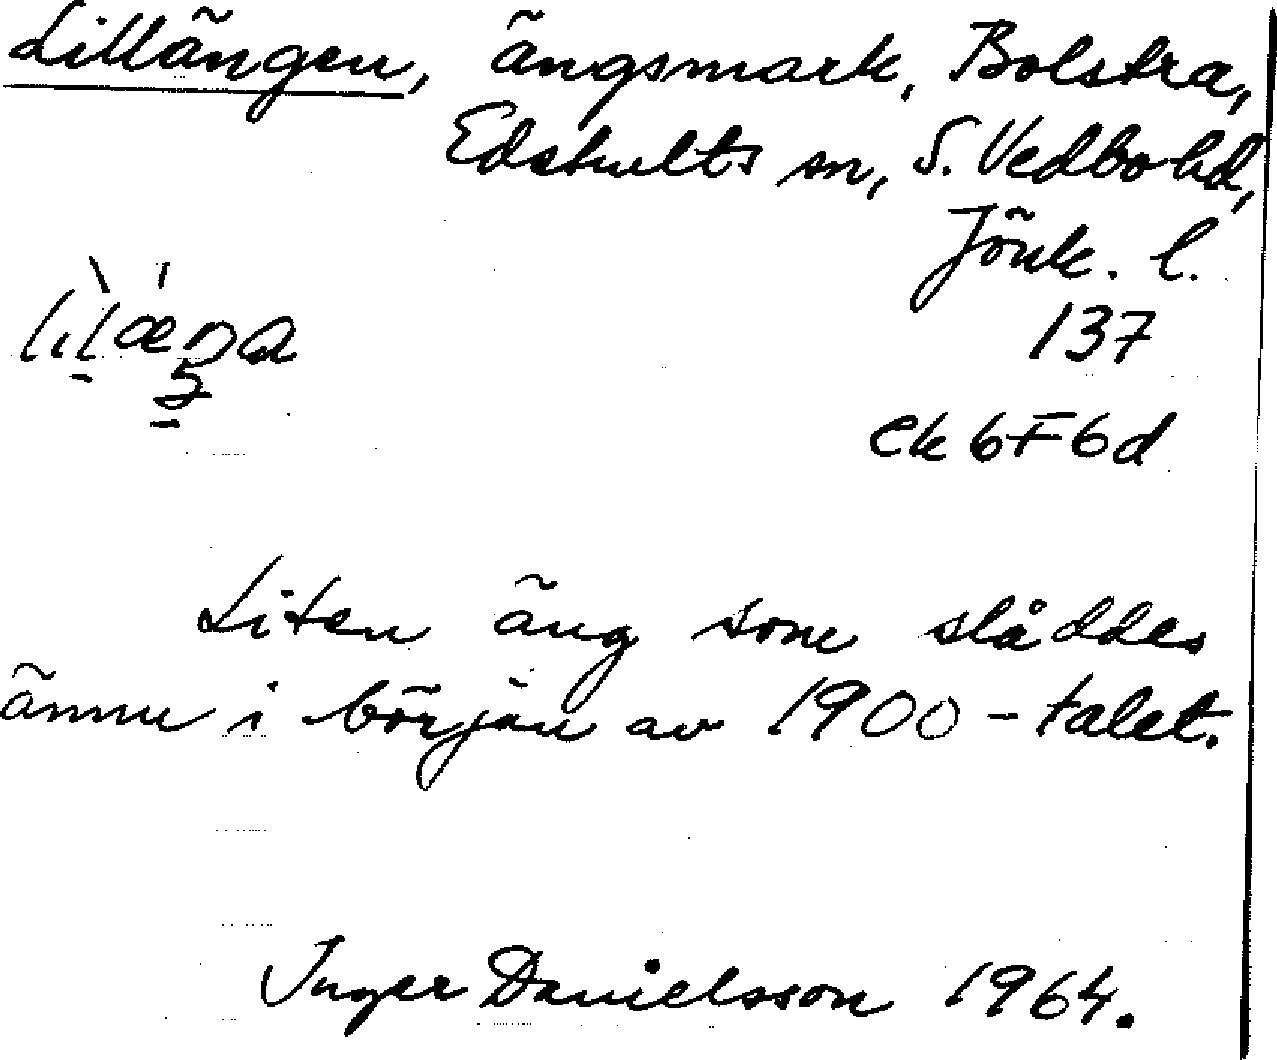 Lillängen, ängsmark, Bolstra,
Edshults sn, S. Vedbo hd,
Jönk. l.
137
ek 6F6d
Liten äng som slåddes
ännu i början av 1900-talet.
Inger Danielsson 1964.